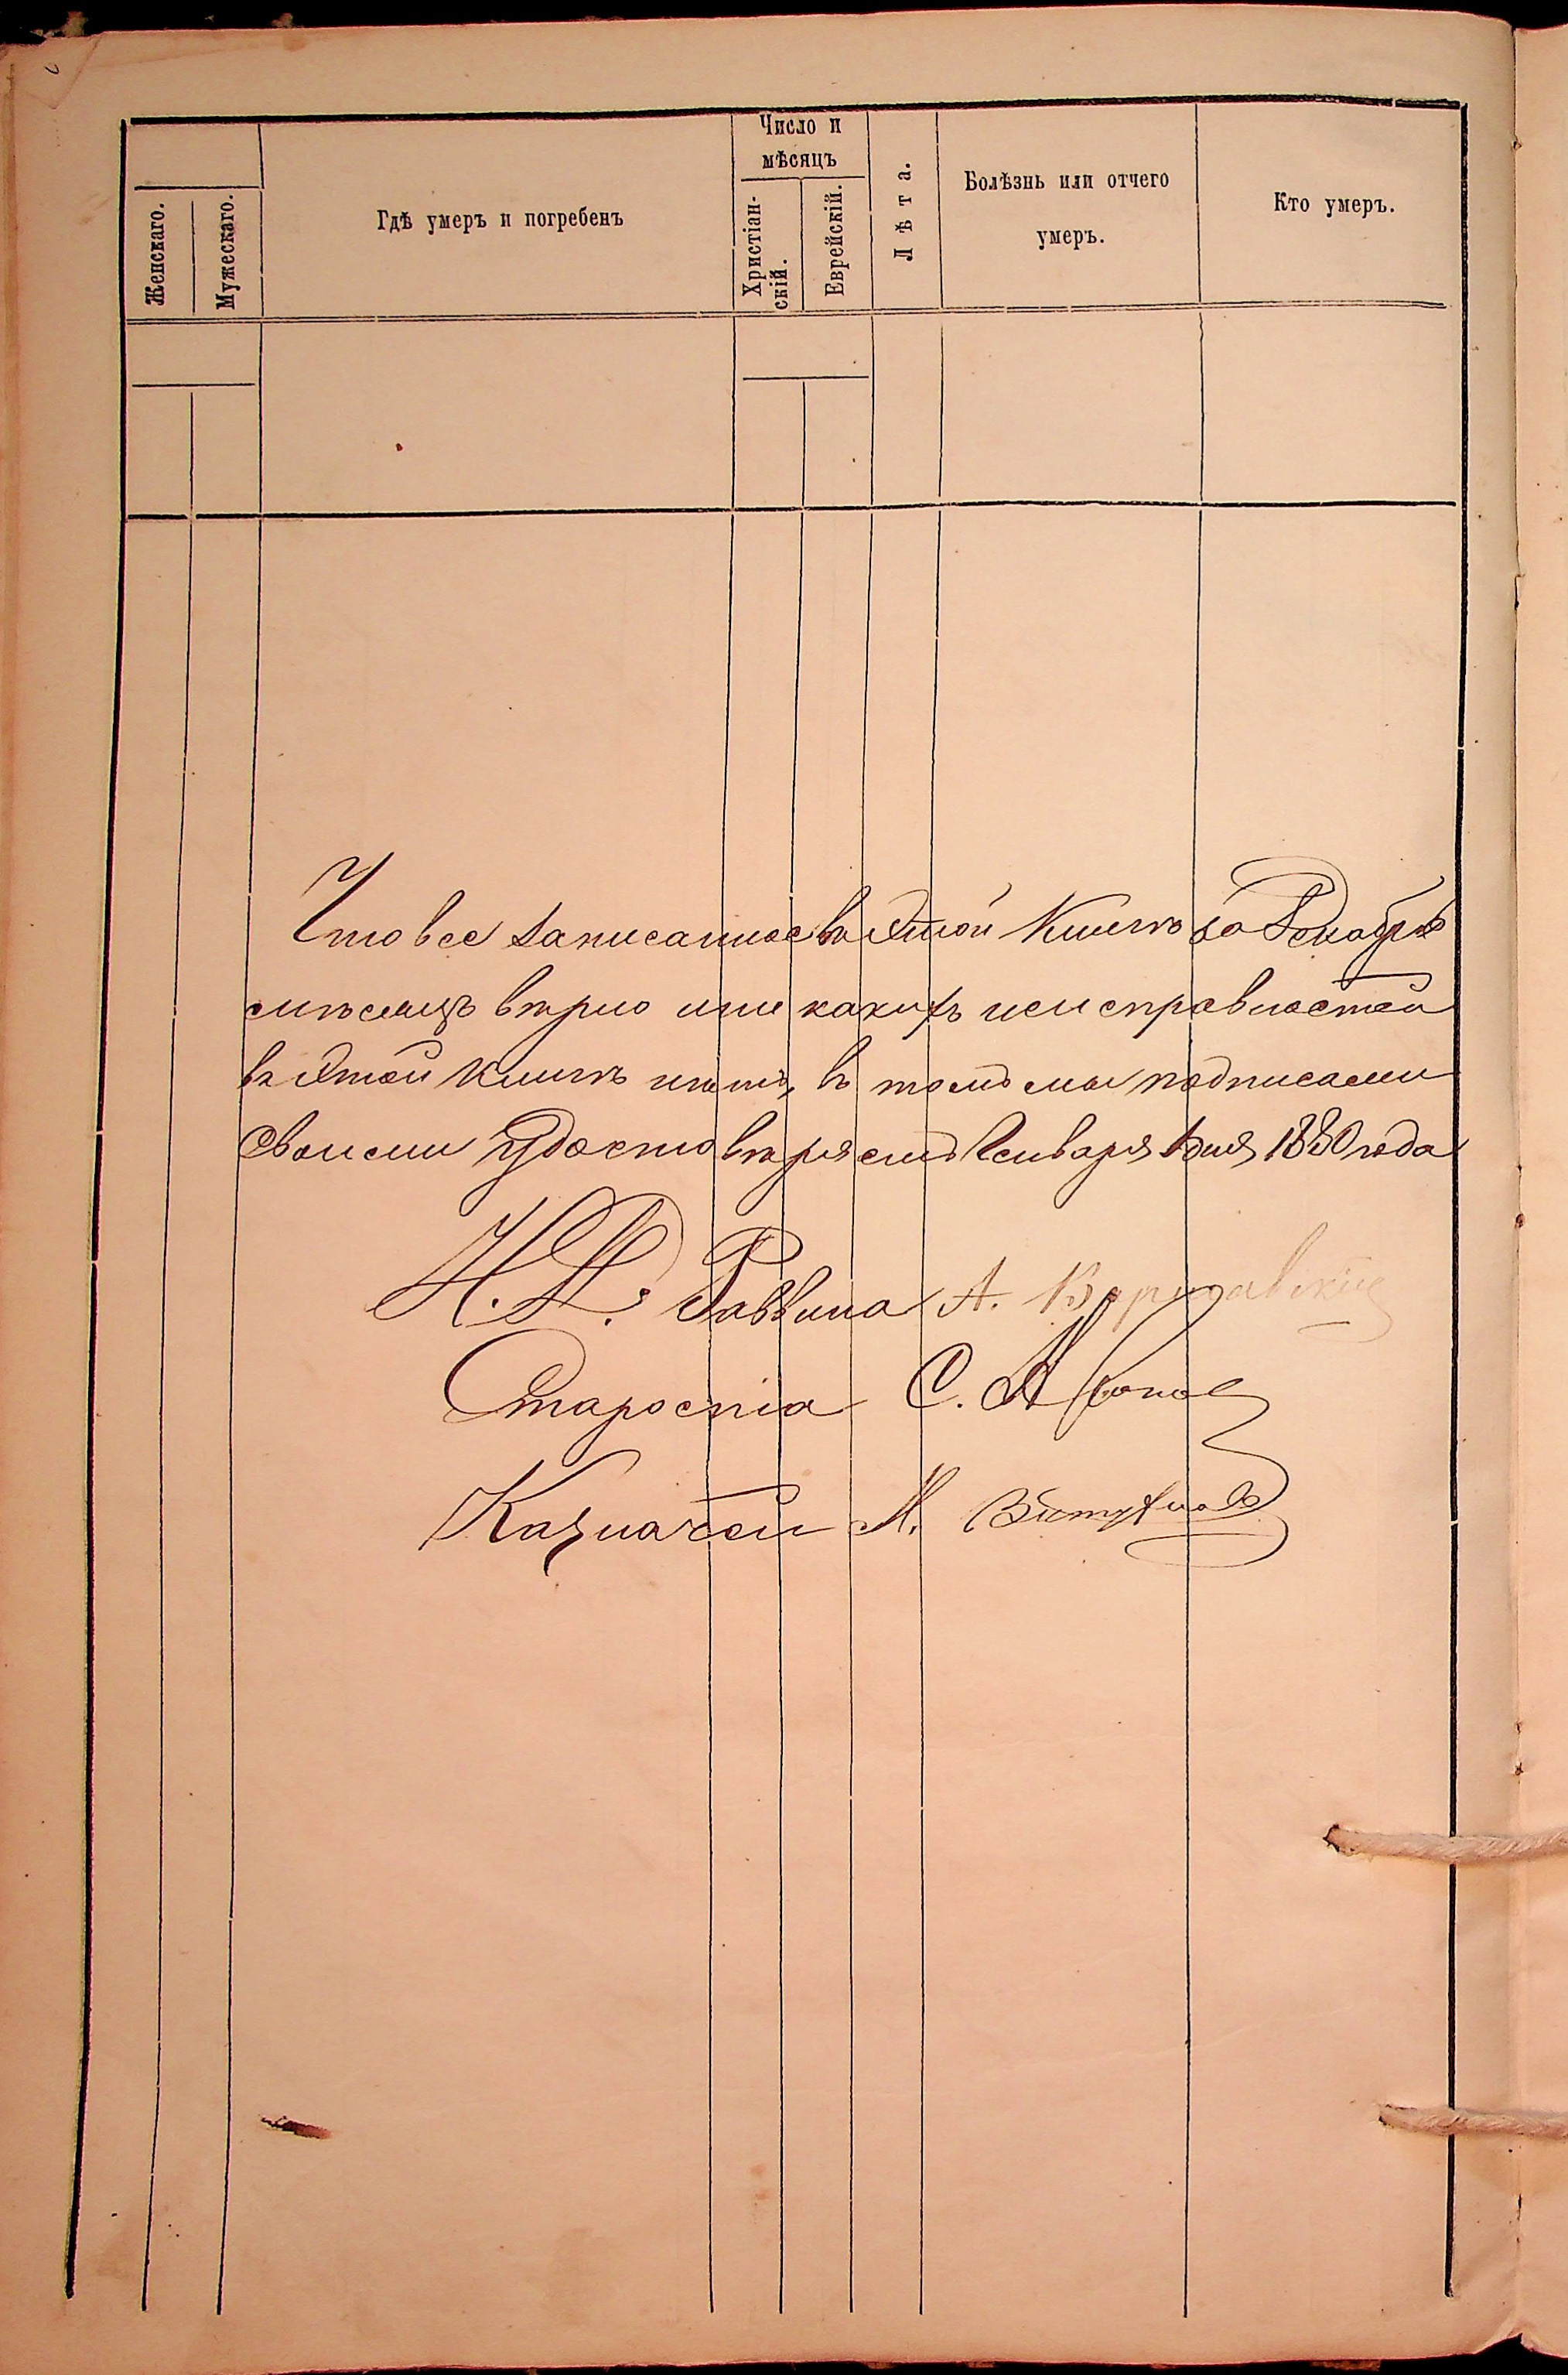 Число и
мѣсяцъ
Женскаго.
Мужескаго.
Гдѣ умеръ и погребенъ
Христіан-
скій.
Еврейскій.
Лѣта.
Болѣзнь или отчего
умеръ.
Кто умеръ.
Что все записанное въ этой Книгѣ за Декабрь
мѣсяцъ вѣрно и ни какихъ неисправностей
въ этой книгѣ нѣтъ, въ томъ мы подписами
своими удостовѣряемъ Января дня 1880 года
И. Д. Раввина А.
Староста С.
Казначей М.